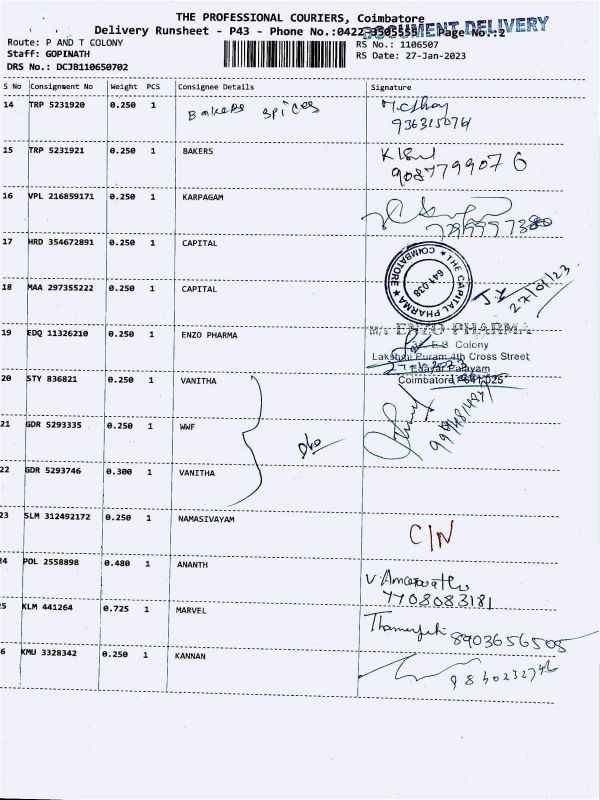 THE PROFESSIONAL COURIERS, Coimbatore
Delivery Runsheet - P43 - Phone No.:0422 3505555 Page No.:2
DOCUMENT DELIVERY
Route: P AND T COLONY
RS No.: 1106507
Staff: GOPINATH
RS Date: 27-Jan-2023
DRS No.: DCJB110650702
S No Consignment No Weight PCS Consignee Details Signature
14 TRP 5231920 0.250 1 Bakers spices
936315076
15 TRP 5231921 0.250 1 BAKERS
9087799076
16 VPL 216859171 0.250 1 KARPAGAM
17 HRD 354672891 0.250 1 CAPITAL
THE CAPITAL PHARMA ★ COIMBATORE ★
641 038
18 MAA 297355222 0.250 1 CAPITAL
27/01/23
19 EDQ 11326210 0.250 1 ENZO PHARMA
M/s ENZO PHARMA
E.B. Colony
Lakshmi Puram 4th Cross Street
Edayar Palayam
Coimbatore 641 025
20 STY 836821 0.250 1 VANITHA
21 GDR 5293335 0.250 1 WWF
22 GDR 5293746 0.300 1 VANITHA
23 SLM 312492172 0.250 1 NAMASIVAYAM
C/N
24 POL 2558898 0.480 1 ANANTH
7708083181
25 KLM 441264 0.725 1 MARVEL
8903656505
6 KMU 3328342 0.250 1 KANNAN